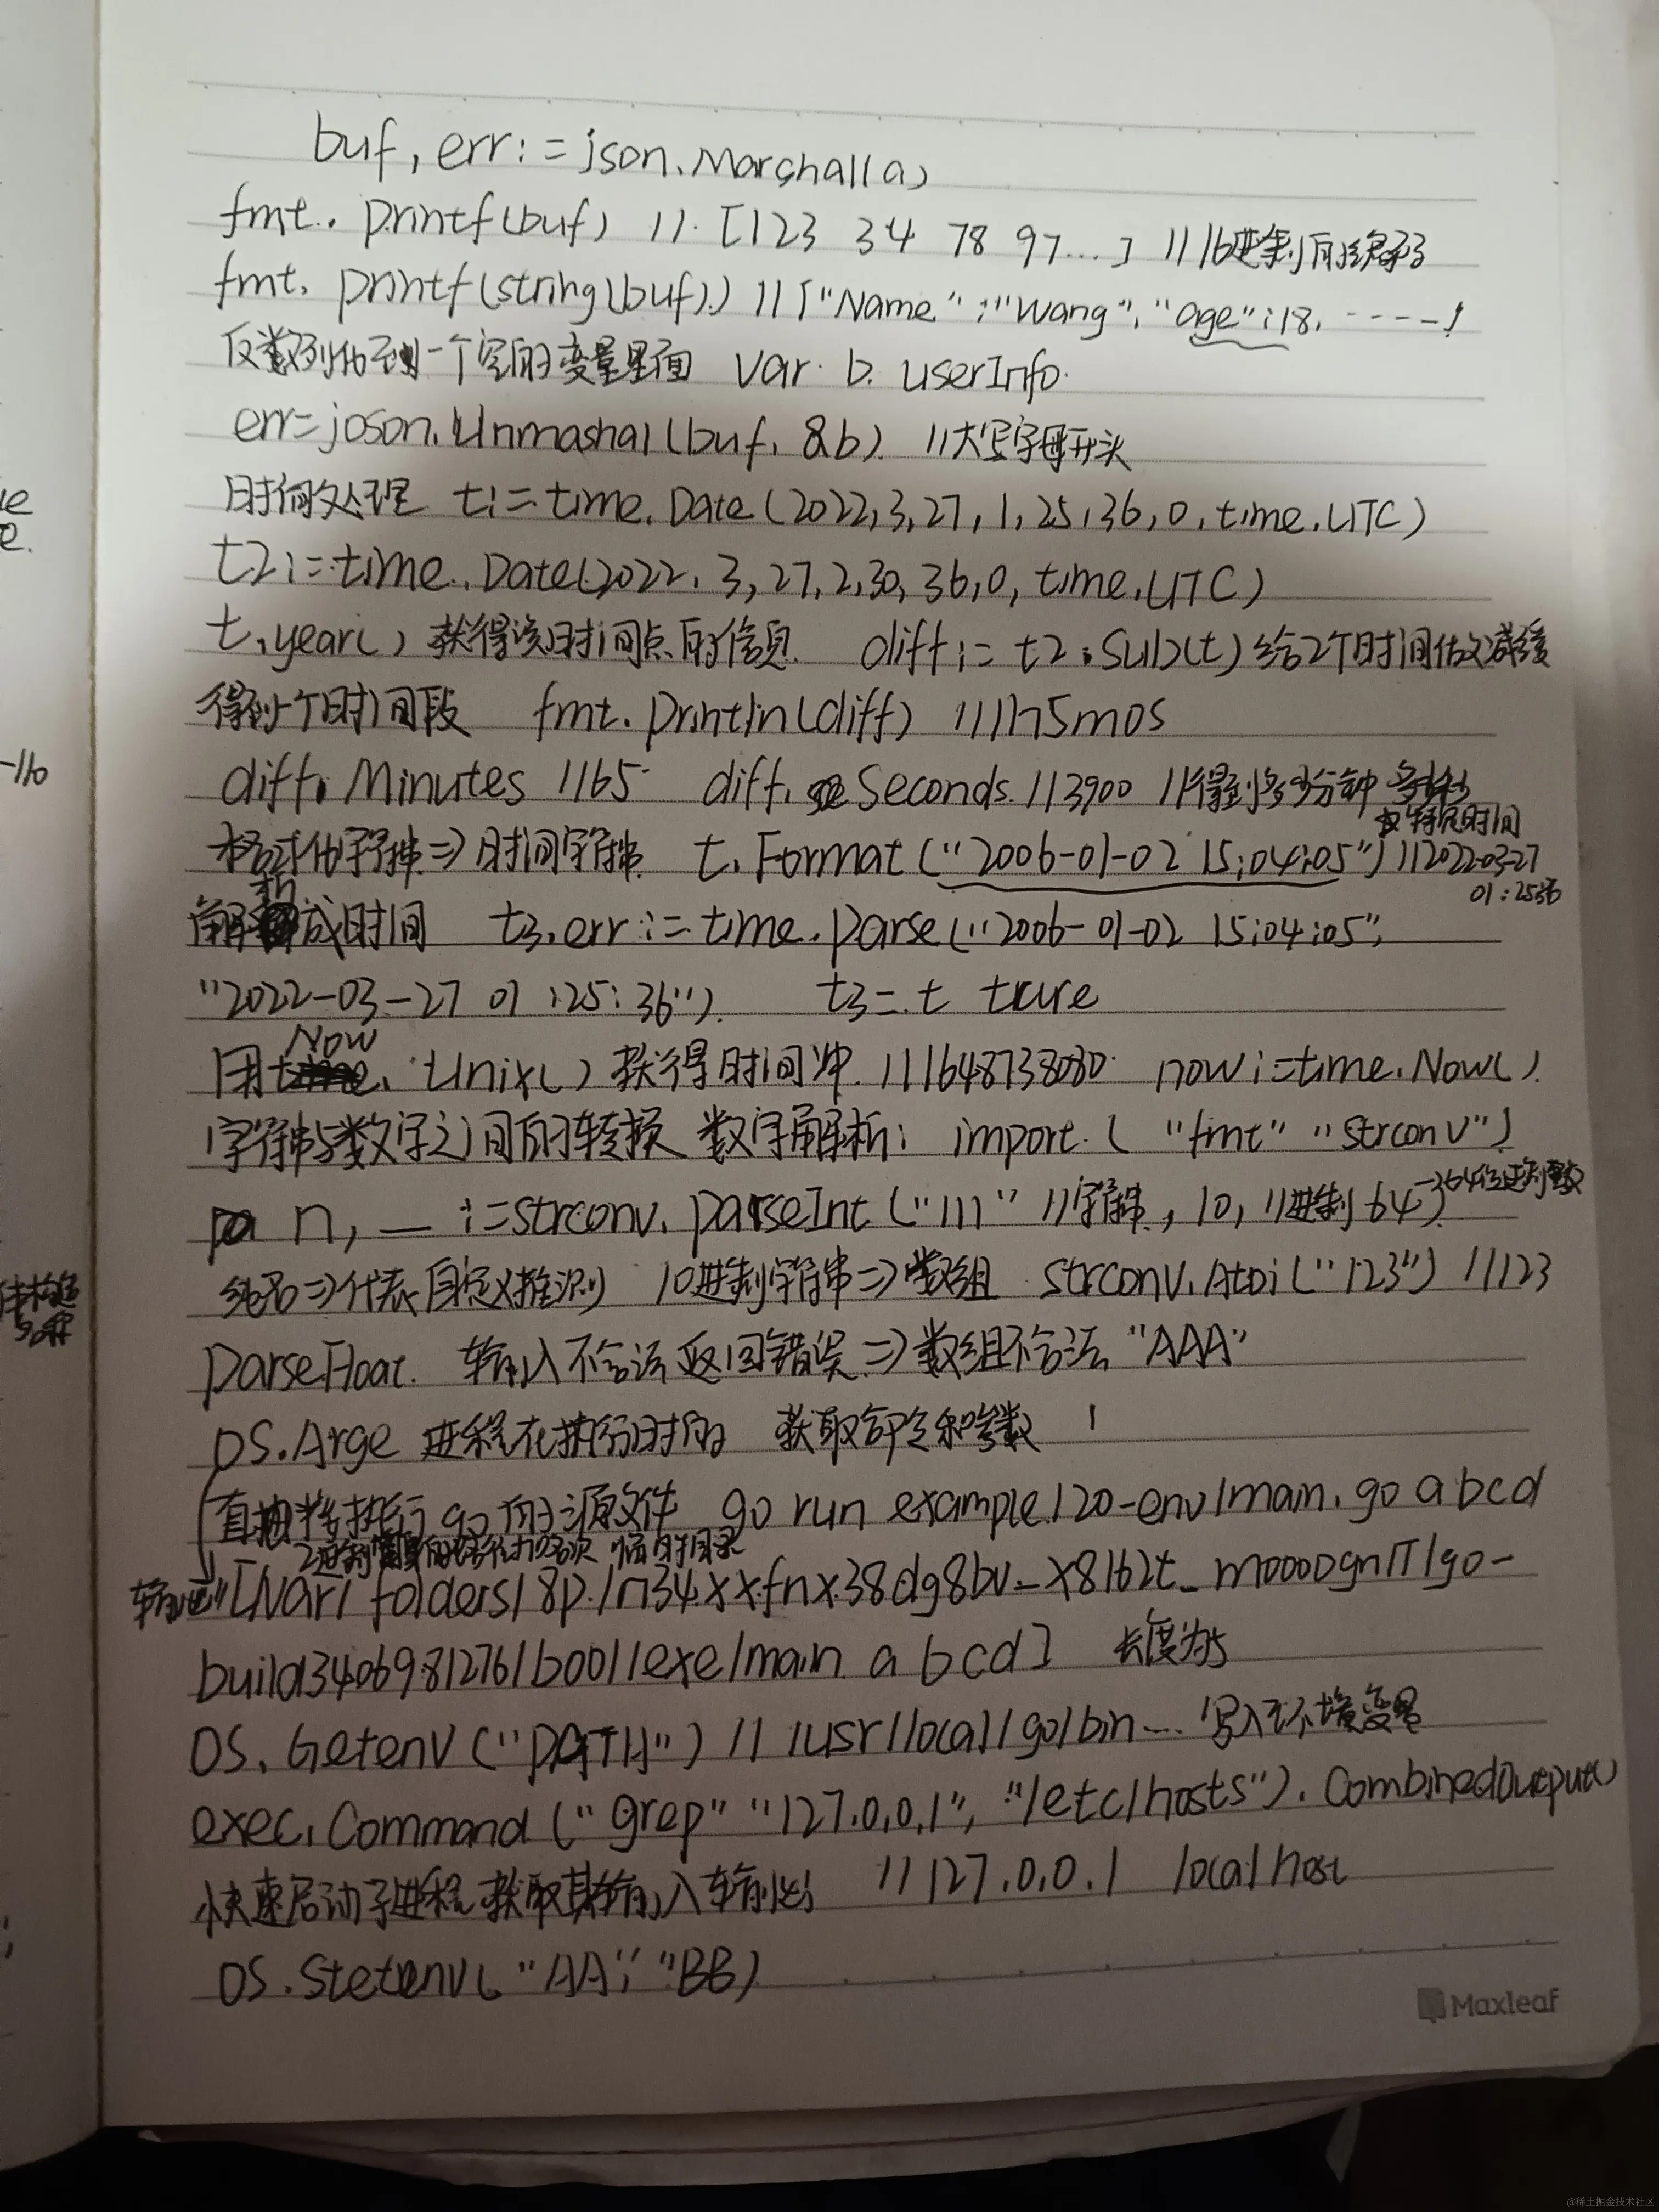 buf, err := json.Marshall(a)
fmt. printf(buf) // [123 34 78 97...] //16进制的编码
fmt. printf(string(buf)) // {"Name":"Wang", "age":18, ----}
反数列化到一个空的变量里面 var b. userInfo
err=joson.Unmashal(buf, &b) //大写字母开头
时间处理 t:=time.Date(2022,3,27,1,25,36,0,time.UTC)
t2:=time.Date(2022,3,27,2,30,36,0,time.UTC)
t.year() 获得该时间点的信息 diff:= t2.Sub(t) 给2个时间做减
得到个时间段 fmt.println(diff) //1h5m0s
diff. Minutes //65 diff. Seconds //3900 //得到多少分钟 多少秒
特定时间
格式化字符串=>时间字符串 t.Format("2006-01-02 15:04:05") //2022-03-27
01:25:36
解析成时间 t3,err:=time.parse("2006-01-02 15:04:05",
"2022-03-27 01:25:36") t3=t true
Now
用. Unix() 获得时间冲 //1648738080 now:=time.Now()
字符串与数字之间的转换 数字解析: import ( "fmt" "strconv")
n, _ :=strconv.parseInt("111" //字符串, 10, //进制 64)
=>代表自定义推测 10进制字符串=>数组 strconv.Atoi("123") //123
parseFloat 输入不合法返回错误=>数组不合法 "AAA"
OS.Arge 进程在执行时的 获取命令和参数
直接执行go的源文件 go run example/20-env/main.go a b c d
2进制的路径加名次 临时目录
输出 [/var/folders/8p/n34xxfnx38dg8bv_x8l62t_m0000gn/T/go-
build3406981276/b001/exe/main a b c d] 长度为5
OS. Getenv("PATH") // /usr/local/go/bin... 写入环境变量
exec.Command("grep" "127.0.0.1", "/etc/hosts"). CombinedOutput()
快速启动子进程 获取其输入输出 //127.0.0.1 localhost
OS.Stetenv("AA", "BB)
Maxleaf
@稀土掘金技术社区